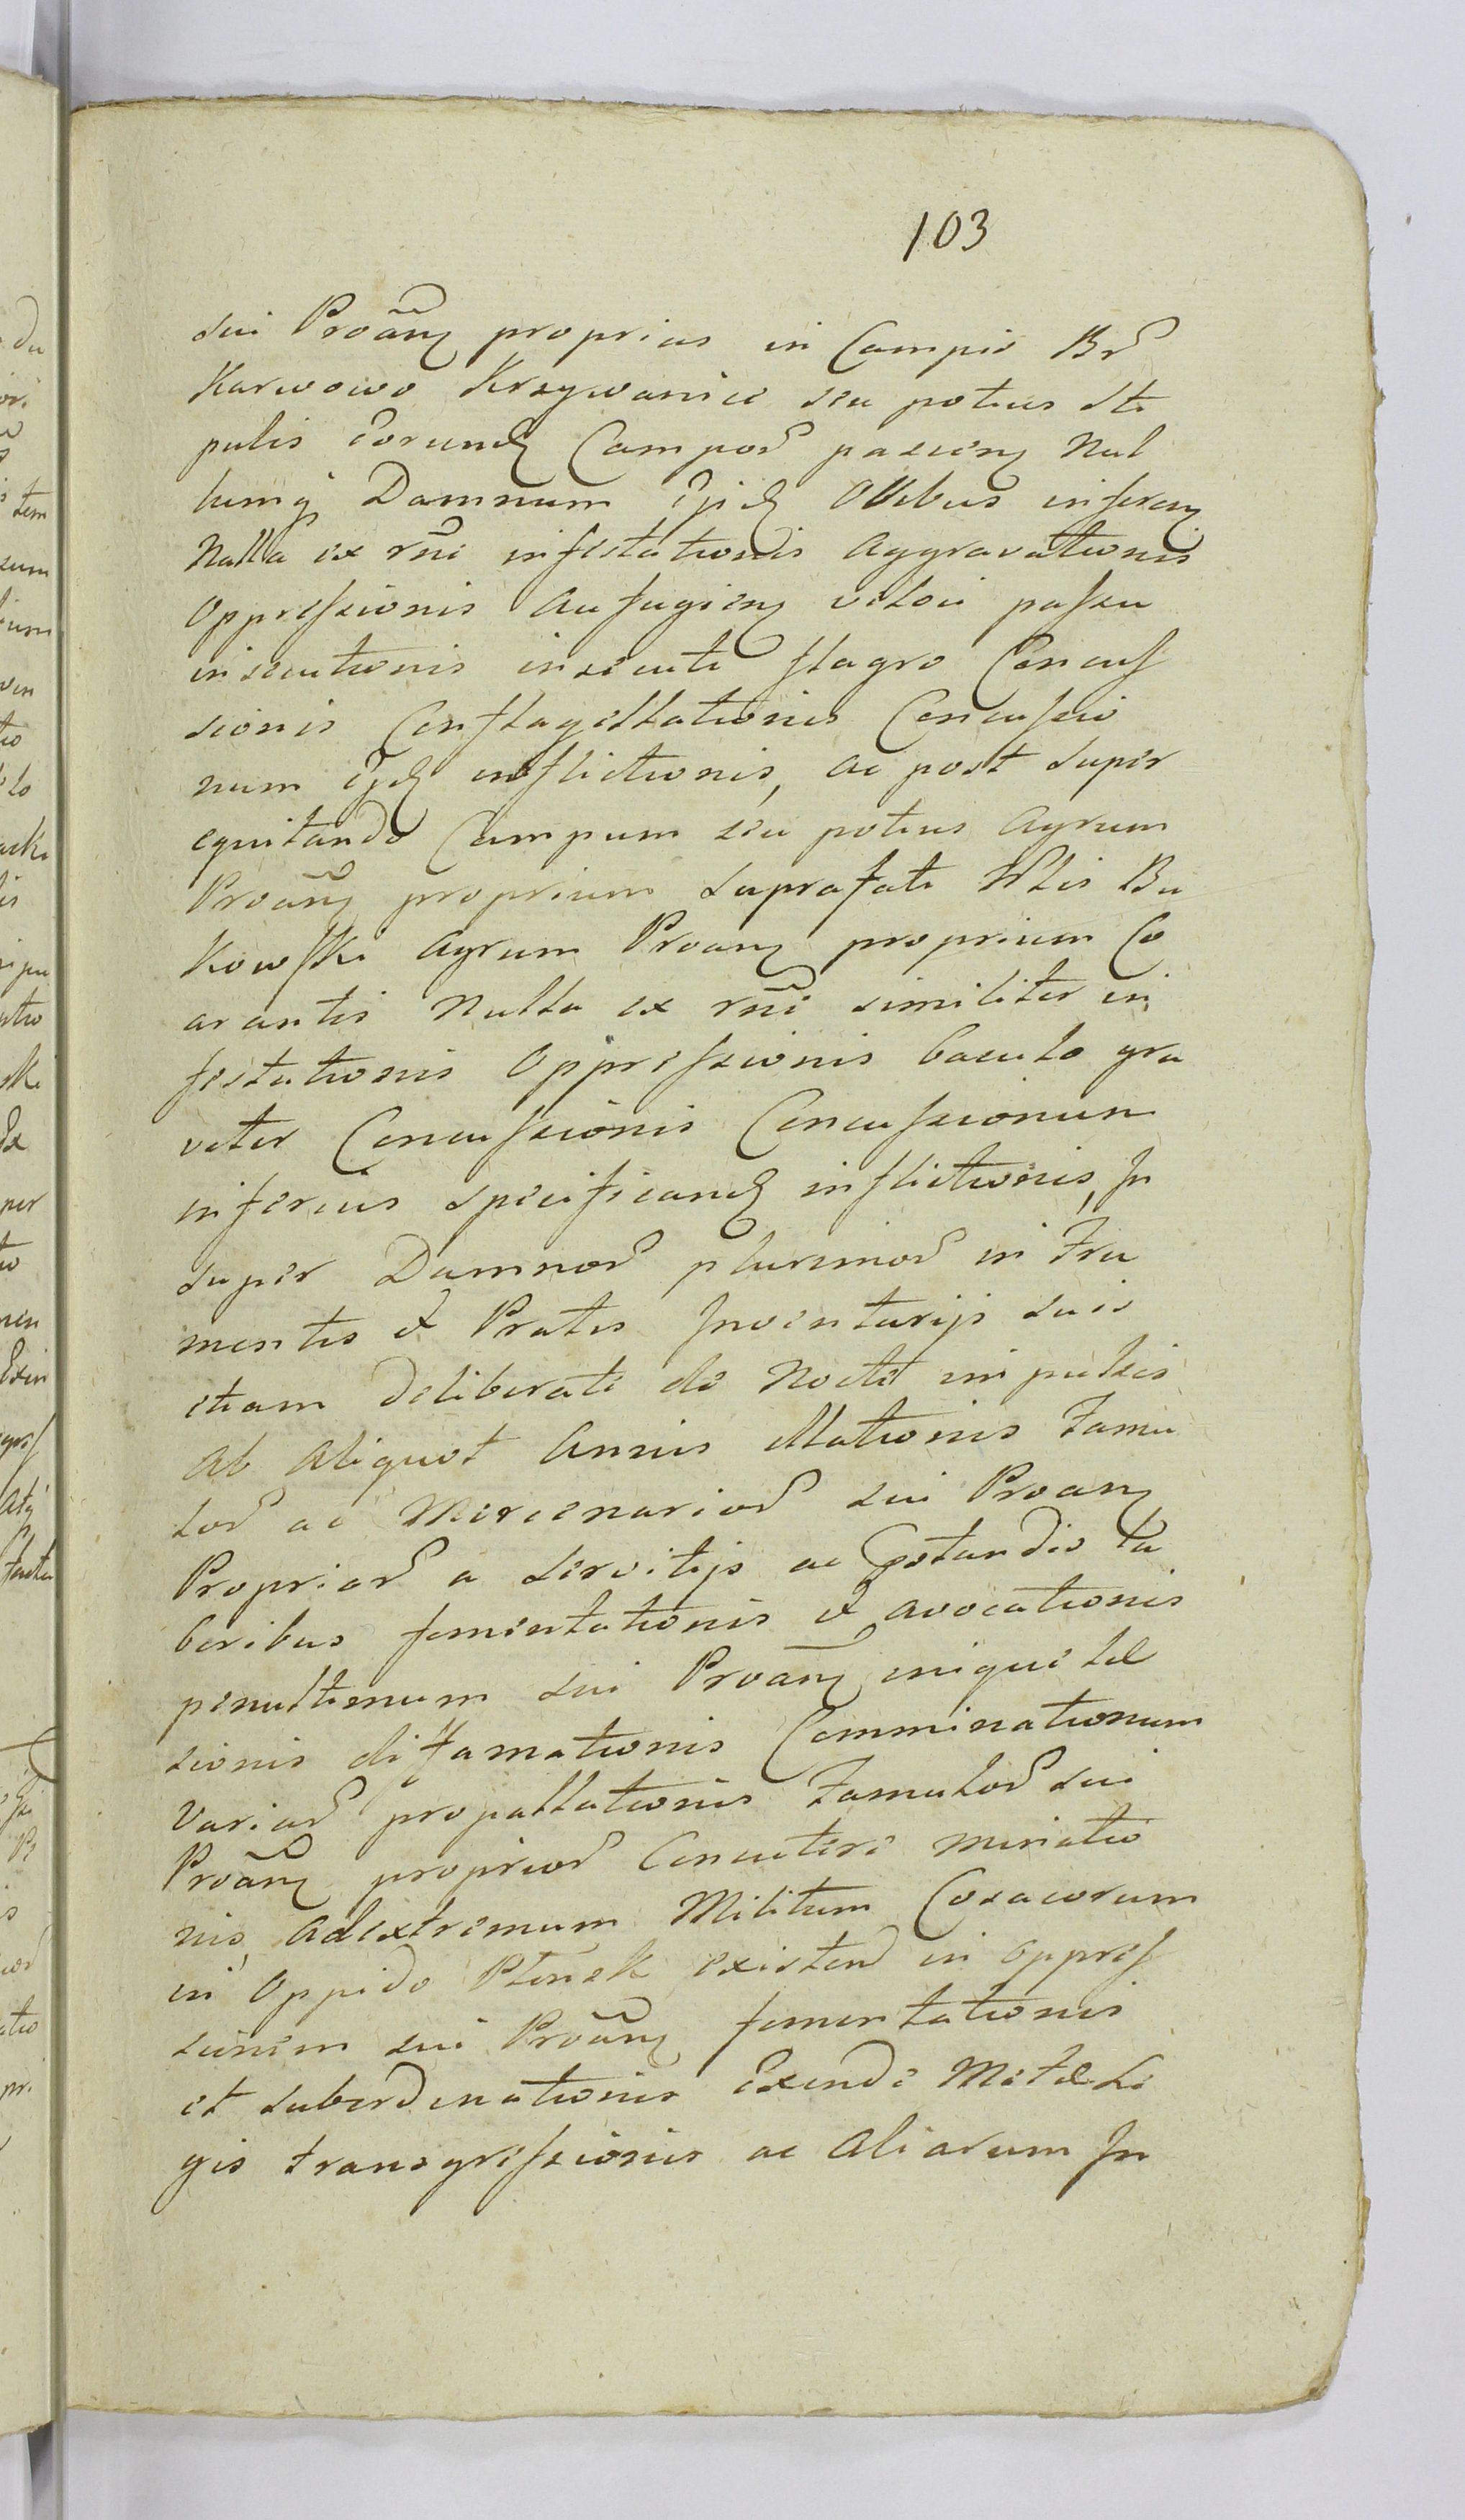 103
sui Proãnȝ proprias in Campis Br̃
Karwowo Krzywanice seu potius sti
pulis eorundȝ Campor̃ pascenȝ Nul
lumqȝ Damnum ijsdȝ Ovibus inferenȝ
Nulla ex rñe infestationis Aggravationis
Oppressionis Aufugienȝ veloci passu
insecutionis insecuti flagro Concus
sionis Conflagellationis Concussio
num ejdȝ inflictionis, ac post super
equitando Campum seu potius Agrum
Proãnȝ proprium suprafati Nlis Bu
kowski Agrum Proanȝ proprium Co
arantis Nulla ex rñe similiter in
festationis Oppressionis baculo gra
viter Concussionis Concussionum
inferius specificandȝ inflictionis, In
super Damnor̃ plurimor̃ in Fru
mentis et Pratis Inventarijs suis
etiam deliberate de Nocte impulsis
Ab Aliquot Annis illationis Famu
lor̃ ac Mercenarior̃ sui Proanȝ
Proprior̃ a servitijs ac Pstandis la
boribus fomentationis et avocationis
penultienum sui Proãnȝ inique lae
sionis diffamationis Comminationum
Variar̃ propallationis Famulor̃ sui
Proãnȝ proprior̃ Concutere minatio
nis, Adextremum Militum Cosacorum
in Oppido Płońsk existen̄ in oppres
sionem sui Proãnȝ fomentationis
et subordinationis Exinde Metae Le
gis transgressionis ac Aliarum In